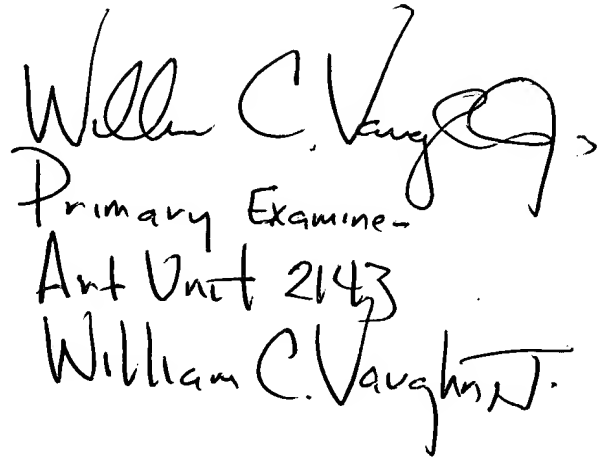 William C. Vaughn Jr.,
Primary Examiner
Art Unit 2143
William C. Vaughn Jr.